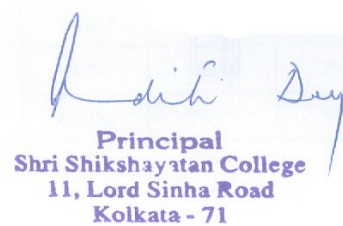 Aditi Dey
Principal
Shri Shikshayatan College
11, Lord Sinha Road
Kolkata - 71